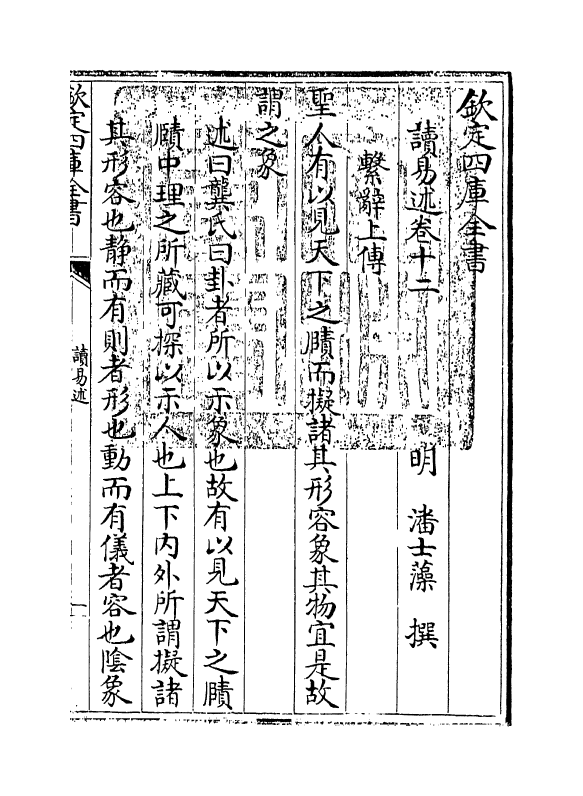 欽定四庫全書
讀易述卷十二
明 潘士藻 撰
繫辭上傳
聖人有以見天下之賾而擬諸其形容象其物宜是故
謂之象
述曰龔氏曰卦者所以示象也故有以見天下之賾
賾中理之所藏可探以示人也上下內外所謂擬諸
其形容也靜而有則者形也動而有儀者容也陰象
欽定四庫全書
讀易述
一